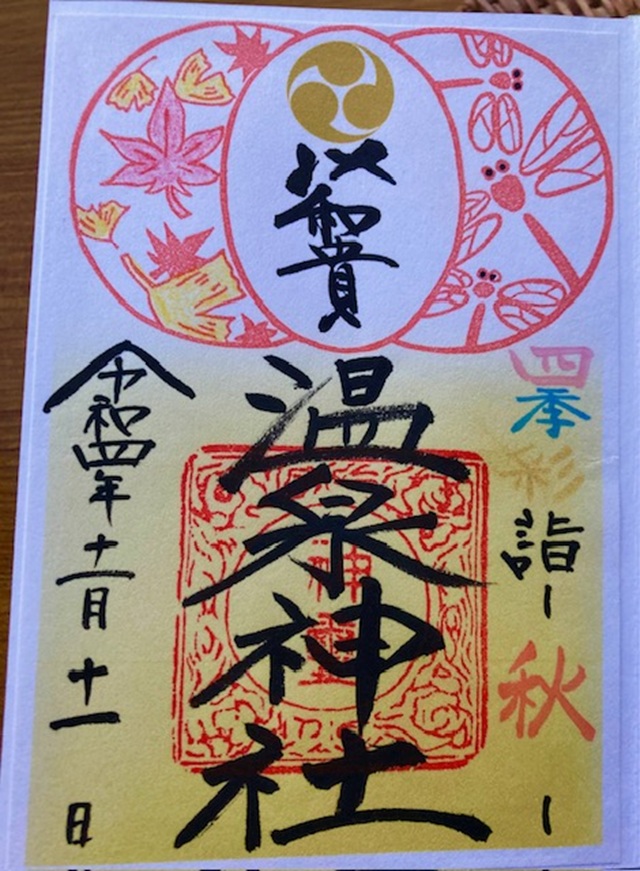 四季彩詣ー秋ー
以和貴
温泉神社
令和四年十一月十一日